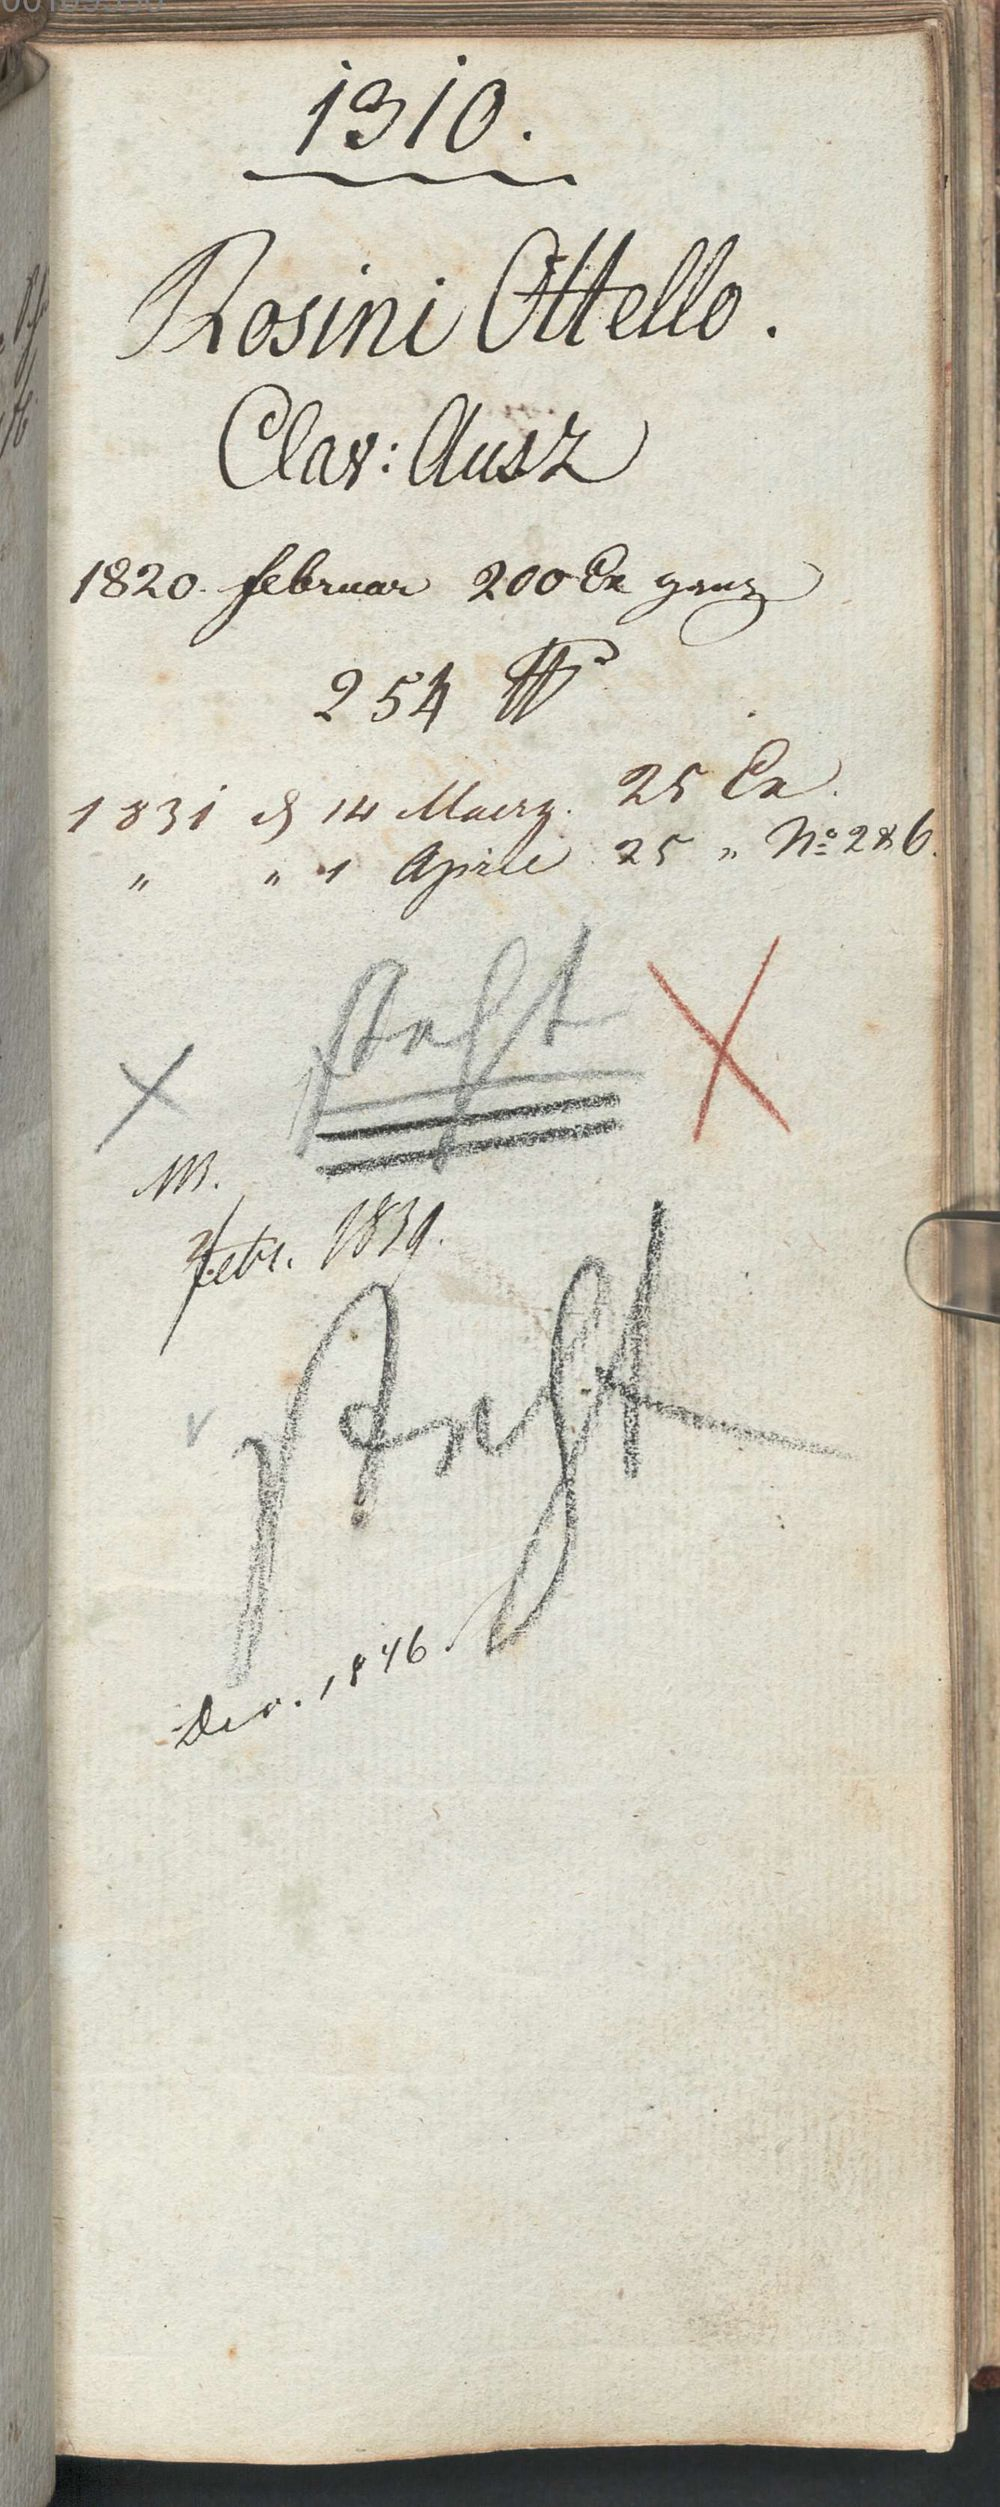 1310.
Rosini Ottello.
Clav: Ausz
1820. februar 200 Ex ganz
254 ℔
1831 d 14 Maerz. 25 Ex.
" " 1 Aprill 25 " No 286.
NB.
Febr. 1839.
Dec. 1846.